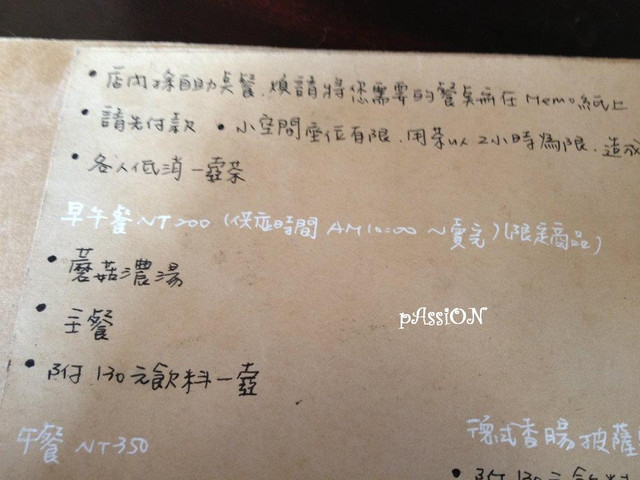 • 店內採自助點餐，煩請將您需要的餐點寫在 Memo 紙上
• 請先付款 • 小空間座位有限，用茶以 2小時為限，造成
• 各人低消一壺茶
早午餐 NT200 (供應時間 AM10:00 ~賣完)(限定商品)
• 蘑菇濃湯
• 主餐
pAssiON
• 附 130元飲料一壺
午餐 NT350
德式香腸披薩
• 附 130元飲料